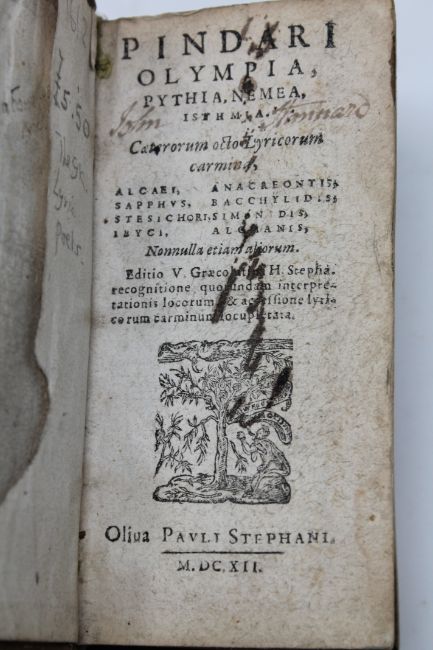 £5.50
Lyric
poets.
PINDARI
OLYMPIA,
PYTHIA, NEMEA,
ISTHMIA.
John Kennard
Cæterorum octo Lyricorum
carmina,
ALCAEI, ANACREONTIS,
SAPPHVS, BACCHYLIDIS,
STESICHORI, SIMONIDIS,
IBYCI, ALCMANIS,
Nonnulla etiam aliorum.
Editio V. Græcolatina H. Steph.
recognitione quorundam interpre-
tationis locorum, & accessione lyri-
corum carminum locupletata.
Oliua PAVLI STEPHANI.
M. DC. XII.